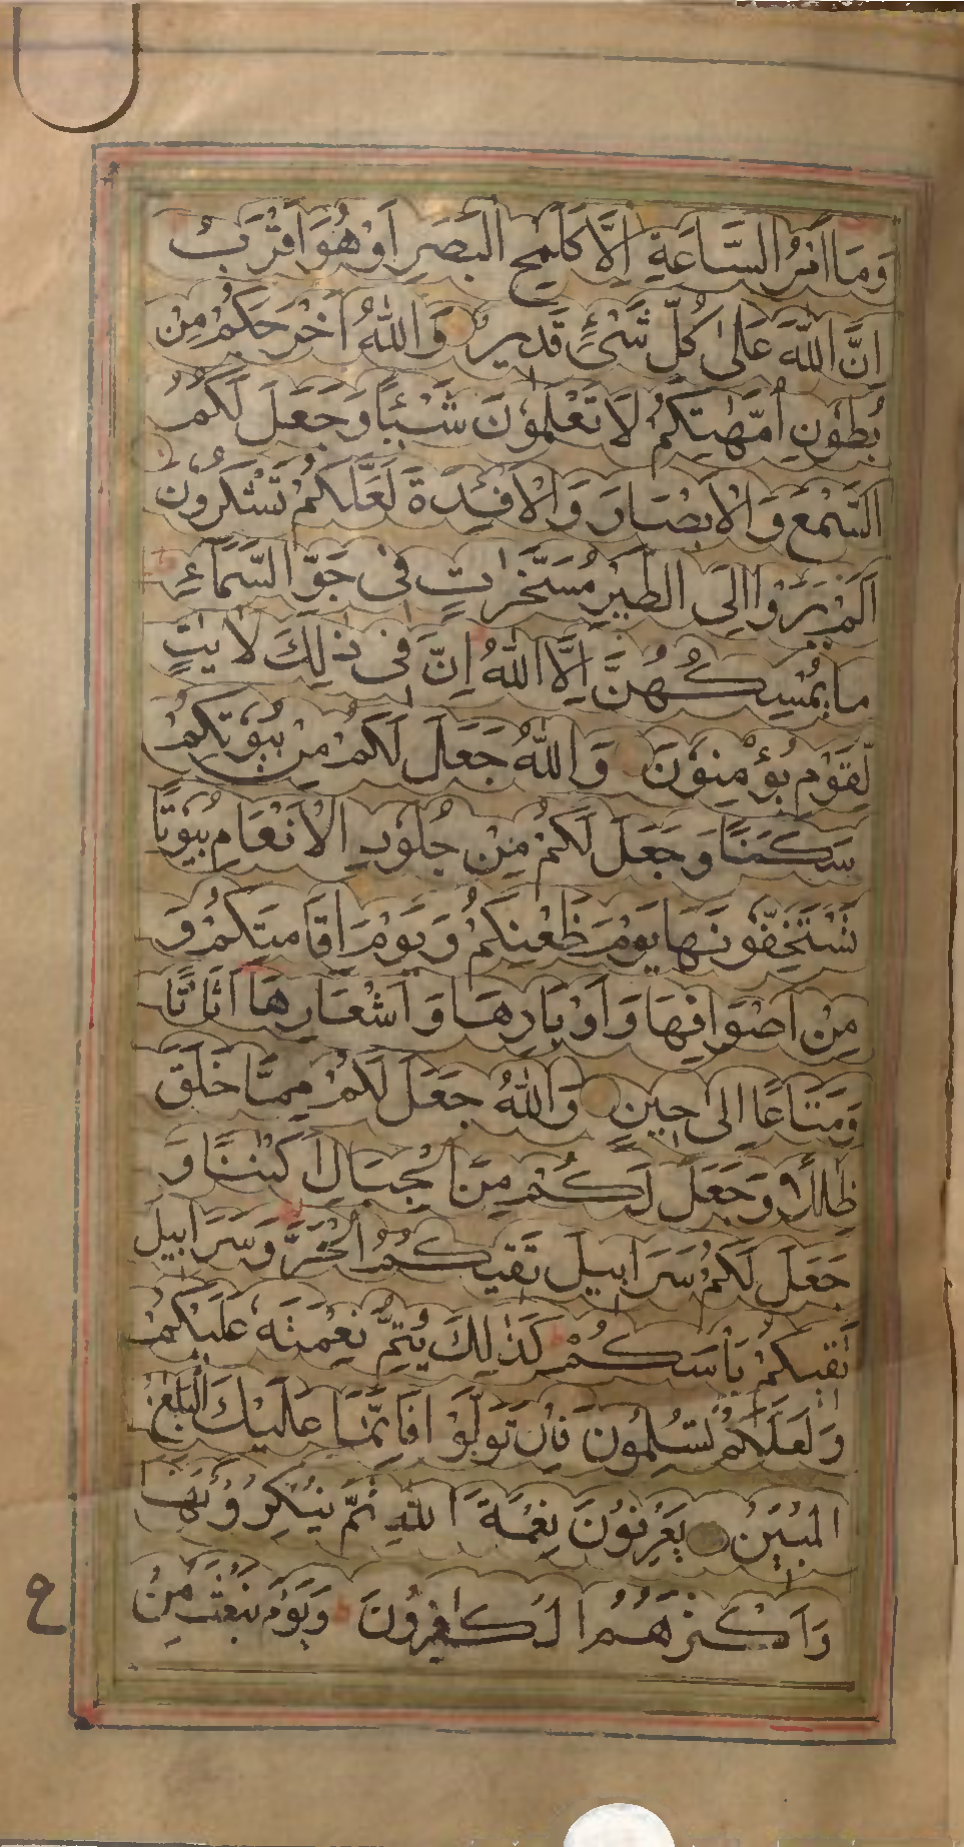 وَمَا اَمْرُ السَّاعَةِ اِلَّا كَلَمْحِ الْبَصَرِ اَوْ هُوَ اَقْرَبُ
اِنَّ اللّٰهَ عَلٰى كُلِّ شَيْءٍ قَدِيرٌ وَاللّٰهُ اَخْرَجَكُمْ مِنْ
بُطُونِ اُمَّهٰتِكُمْ لَا تَعْلَمُونَ شَيْئًا وَجَعَلَ لَكُمُ
السَّمْعَ وَالْاَبْصَارَ وَالْاَفْئِدَةَ لَعَلَّكُمْ تَشْكُرُونَ
اَلَمْ يَرَوْا اِلَى الطَّيْرِ مُسَخَّرَاتٍ فِى جَوِّ السَّمَاءِ
مَا يُمْسِكُهُنَّ اِلَّا اللّٰهُ اِنَّ فِى ذٰلِكَ لَاٰيٰتٍ
لِّقَوْمٍ يُؤْمِنُونَ وَاللّٰهُ جَعَلَ لَكُمْ مِنْ بُيُوتِكُمْ
سَكَنًا وَجَعَلَ لَكُمْ مِنْ جُلُودِ الْاَنْعَامِ بُيُوتًا
تَسْتَخِفُّونَهَا يَوْمَ ظَعْنِكُمْ وَيَوْمَ اِقَامَتِكُمْ وَ
مِنْ اَصْوَافِهَا وَاَوْبَارِهَا وَاَشْعَارِهَا اَثَاثًا
وَمَتَاعًا اِلٰى حِينٍ وَاللّٰهُ جَعَلَ لَكُمْ مِمَّا خَلَقَ
ظِلٰلًا وَجَعَلَ لَكُمْ مِنَ الْجِبَالِ اَكْنَانًا وَ
جَعَلَ لَكُمْ سَرَابِيلَ تَقِيكُمُ الْحَرَّ وَسَرَابِيلَ
تَقِيكُمْ بَأْسَكُمْ كَذٰلِكَ يُتِمُّ نِعْمَتَهُ عَلَيْكُمْ
وَلَعَلَّكُمْ تُسْلِمُونَ فَاِنْ تَوَلَّوْا فَاِنَّمَا عَلَيْكَ الْبَلٰغُ
الْمُبِينُ يَعْرِفُونَ نِعْمَةَ اللّٰهِ ثُمَّ يُنْكِرُونَهَا
وَاَكْثَرُهُمُ الْكَافِرُونَ وَيَوْمَ نَبْعَثُ مِنْ
ع